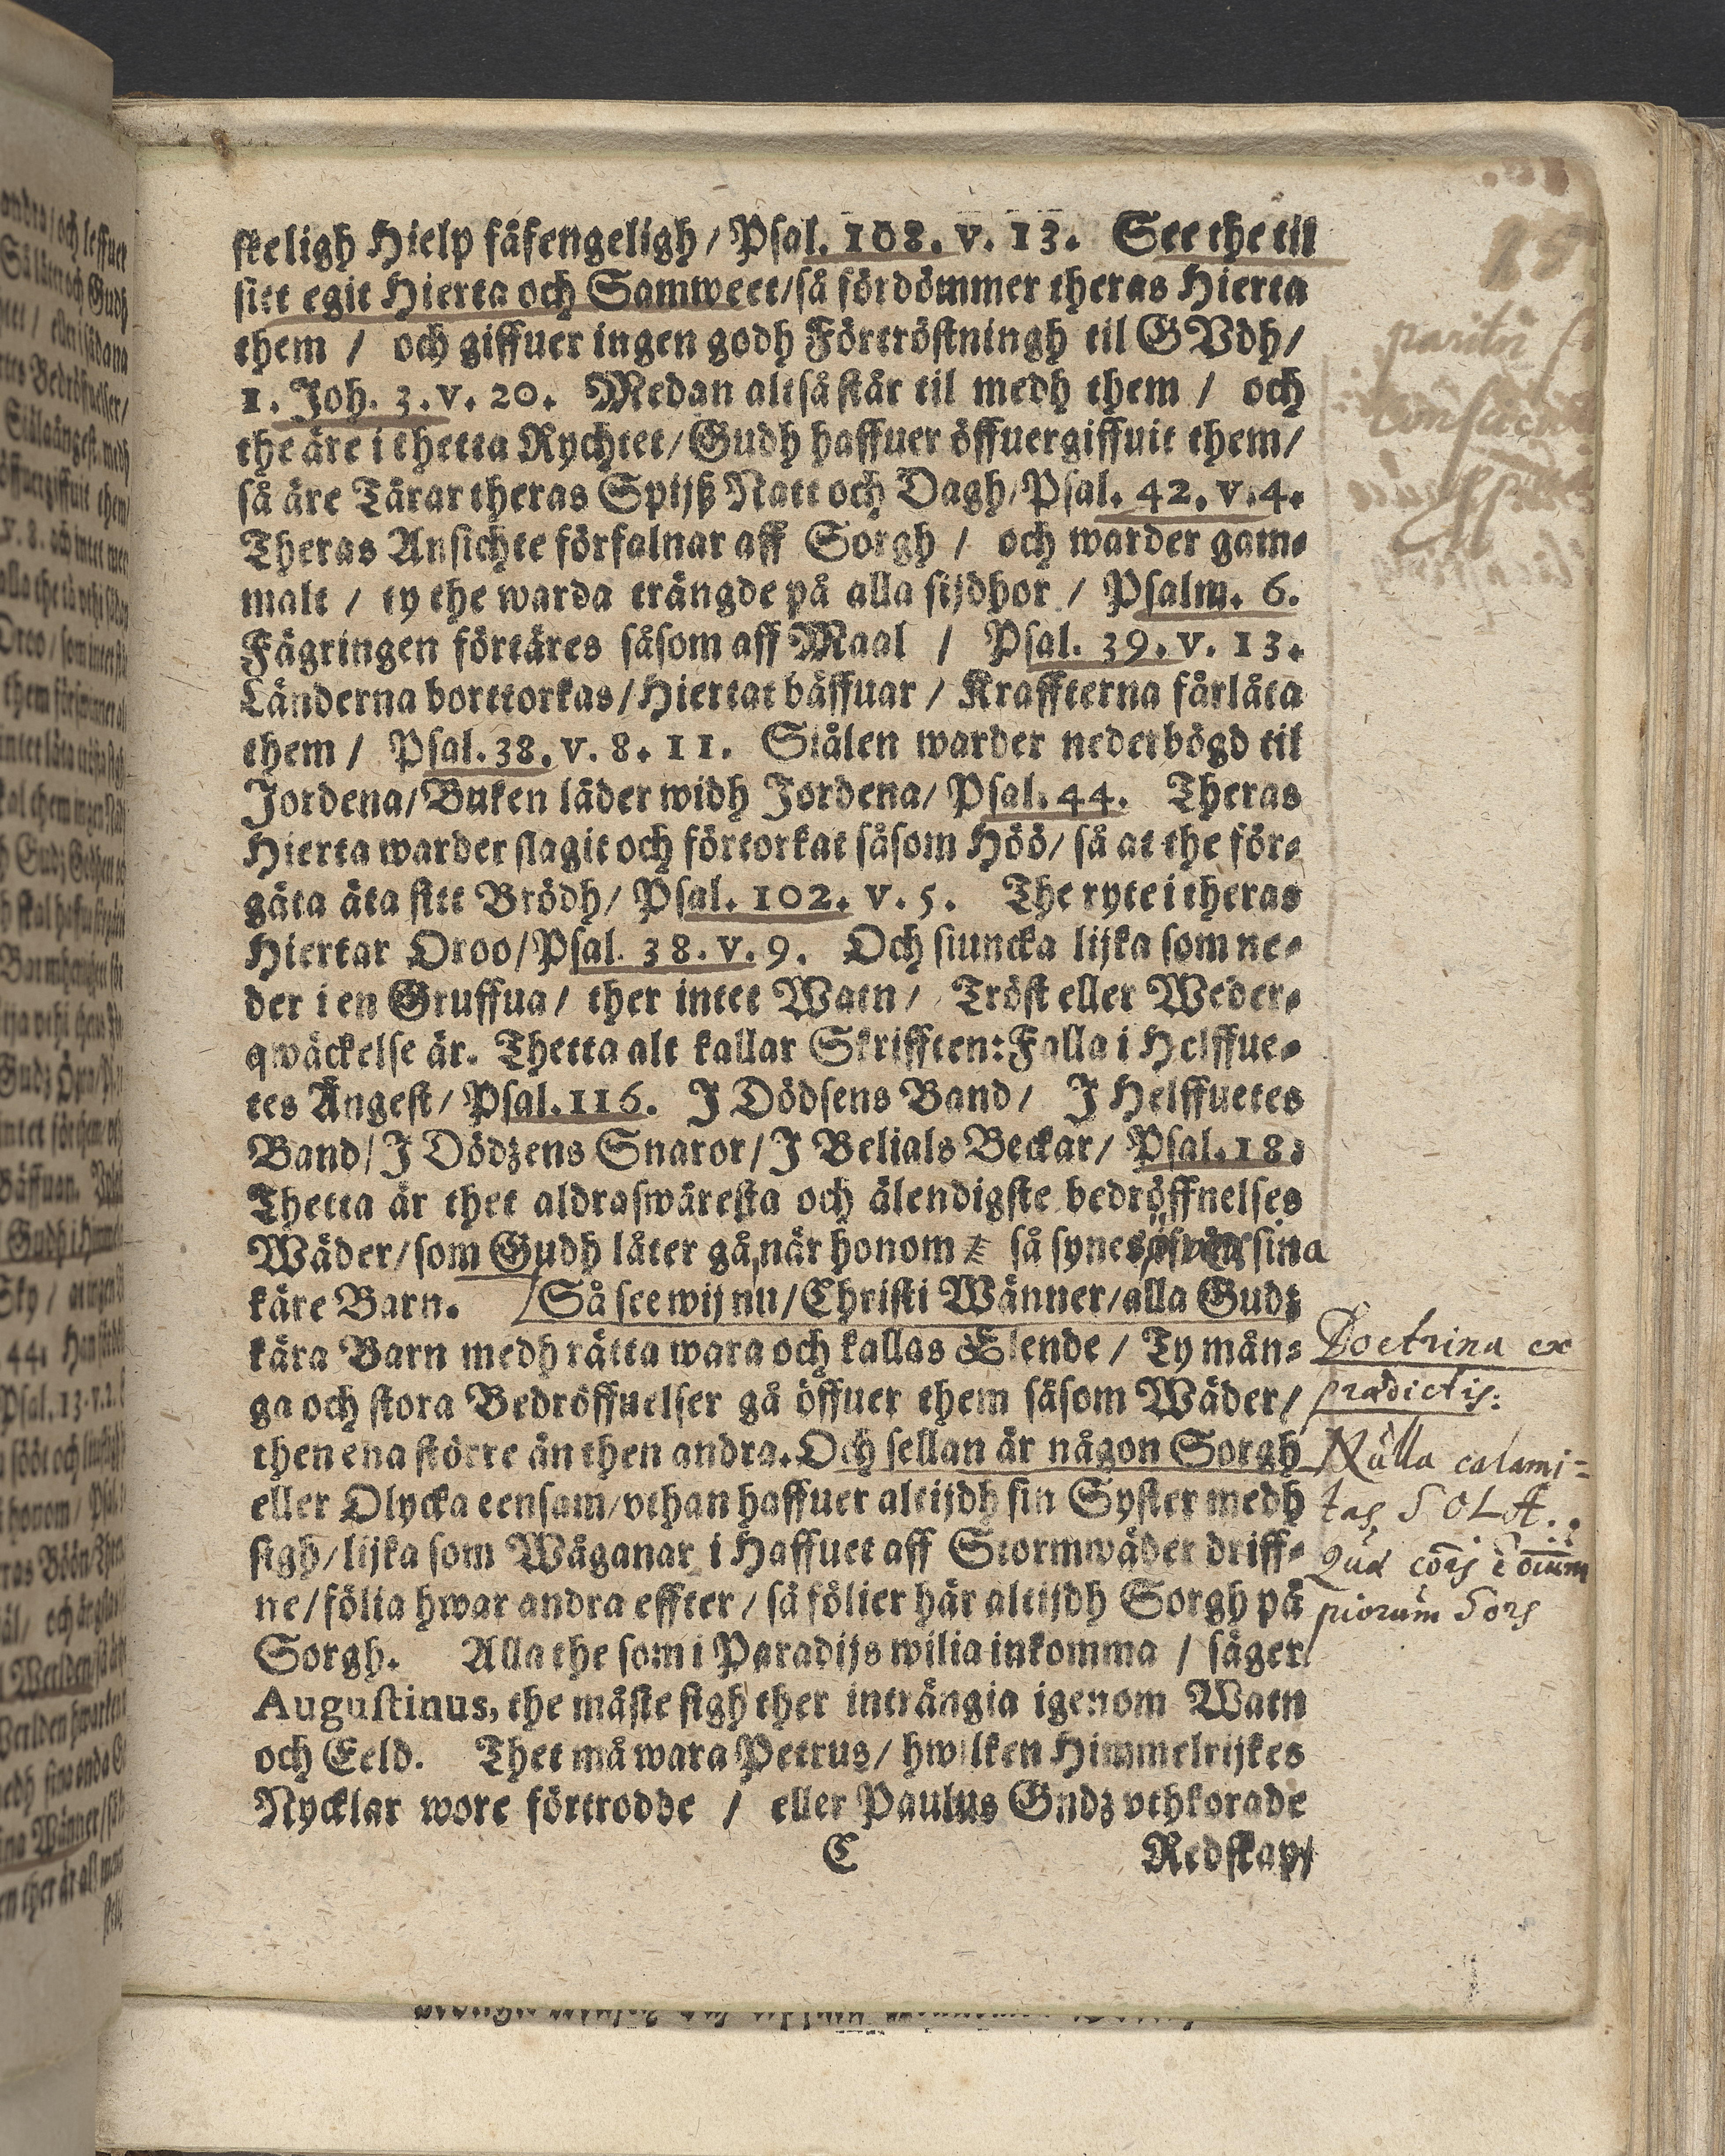 skeligh Hielp fåfengeligh/ Psal. 108. v. 13. See the til
sitt egit Hierta och Samweet/ så fördömmer theras Hierta
them / och giffuer ingen godh Förtröstningh til GVdh/
1. Joh. 3. v. 20. Medan altså står til medh them / och
the äre i thetta Rychtet/ Gudh haffuer öffuergiffuit them/
så äre Tårar theras Spijß Natt och Dagh/ Psal. 42. v. 4.
Theras Ansichte förfalnar aff Sorgh / och warder gam-
malt / ty the warda trängde på alla sijdhor / Psalm. 6.
Fägringen förtäres såsom aff Maal / Psal. 39. v. 13.
Länderna borttorkas/ Hiertat bäffuar / Kraffterna förlåta
them / Psal. 38. v. 8. 11. Siälen warder nederbögd til
Jordena/ Buken läder widh Jordena/ Psal. 44. Theras
Hierta warder slagit och förtorkat såsom Höö/ så at the för-
gäta äta sitt Brödh/ Psal. 102. v. 5. The ryte i theras
Hiertar Oroo/ Psal. 38. v. 9. Och siuncka lijka som ne-
der i en Gruffua/ ther intet Watn/ Tröst eller Weder-
qwäckelse är. Thetta alt kallar Skrifften: Falla i Helffue-
tes Ångest/ Psal. 116. J Dödsens Band/ J Helffuetes
Band/ J Dödzens Snaror/ J Belials Beckar/ Psal. 18.
Thetta är thet aldraswåresta och älendigste bedröffnelses
Wäder/ som Gudh låter gå, när honom så synes sina
käre Barn. Så see wij nu/ Christi Wänner/ alla Gudz
kära Barn medh rätta wara och kallas Elende / Ty mån-
ga och stora Bedröffuelser gå öffuer them såsom Wäder/
then ena större än then andra. Och sellan är någon Sorgh
eller Olycka eensam/ vthan haffuer altijdh sin Syster medh
sigh/ lijka som Wåganar i Haffuet aff Stormwäder driff-
ne/ fölia hwar andra effter/ så fölier här altijdh Sorgh på
Sorgh. Alla the som i Paradijs wilia inkomma / säger
Augustinus, the måste sigh ther inträngia igenom Watn
och Eeld. Thet må wara Petrus/ hwilken Himmelrijkes
Nycklar wore förtrodde / eller Paulus Gndz vthkorade
C Redskap/
Doctrina ex
prædictis:
Nulla calami-
tas SOLA.
piorum Sors